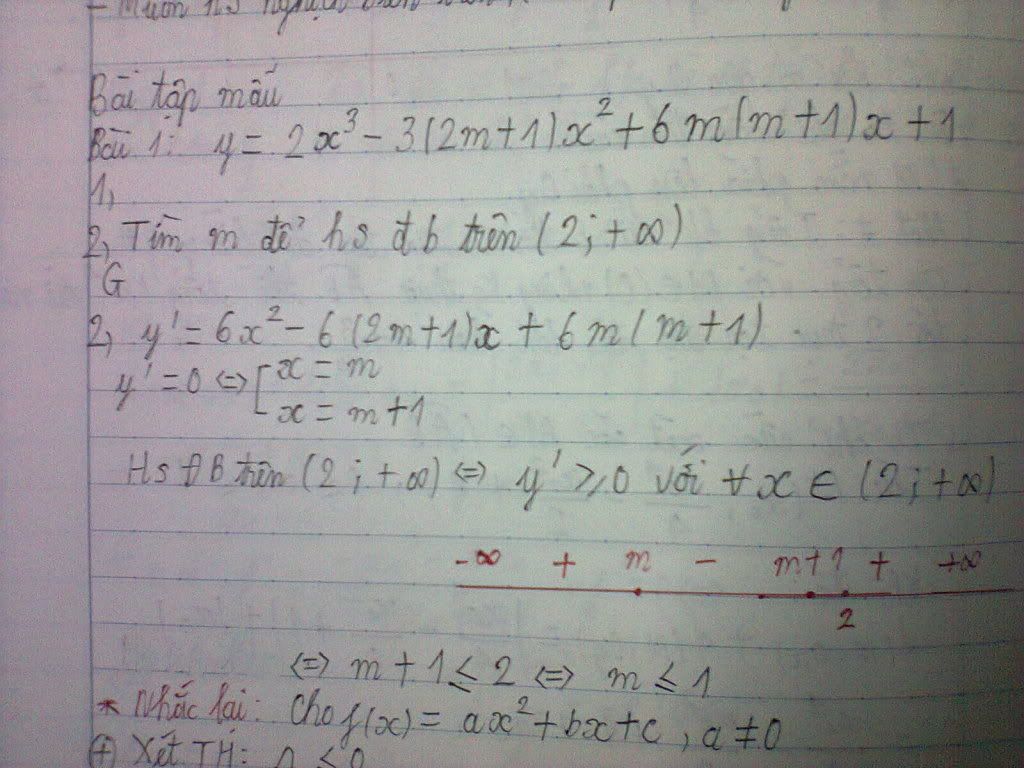 - Muốn hs nghịch biến
Bài tập mẫu
Bài 1: y = 2x³ - 3(2m+1)x² + 6m(m+1)x + 1
1,
2, Tìm m để hs đb trên (2; +∞)
G
2, y' = 6x² - 6(2m+1)x + 6m(m+1).
y' = 0 ⇔ [ x = m
x = m+1
Hs ĐB trên (2; +∞) ⇔ y' ⩾ 0 với ∀x ∈ (2; +∞)
-∞ + m - m+1 + +∞
2
⇔ m + 1 ≤ 2 ⇔ m ≤ 1
* Nhắc lại: Cho f(x) = ax² + bx + c, a ≠ 0
⊕ Xét TH: Δ < 0